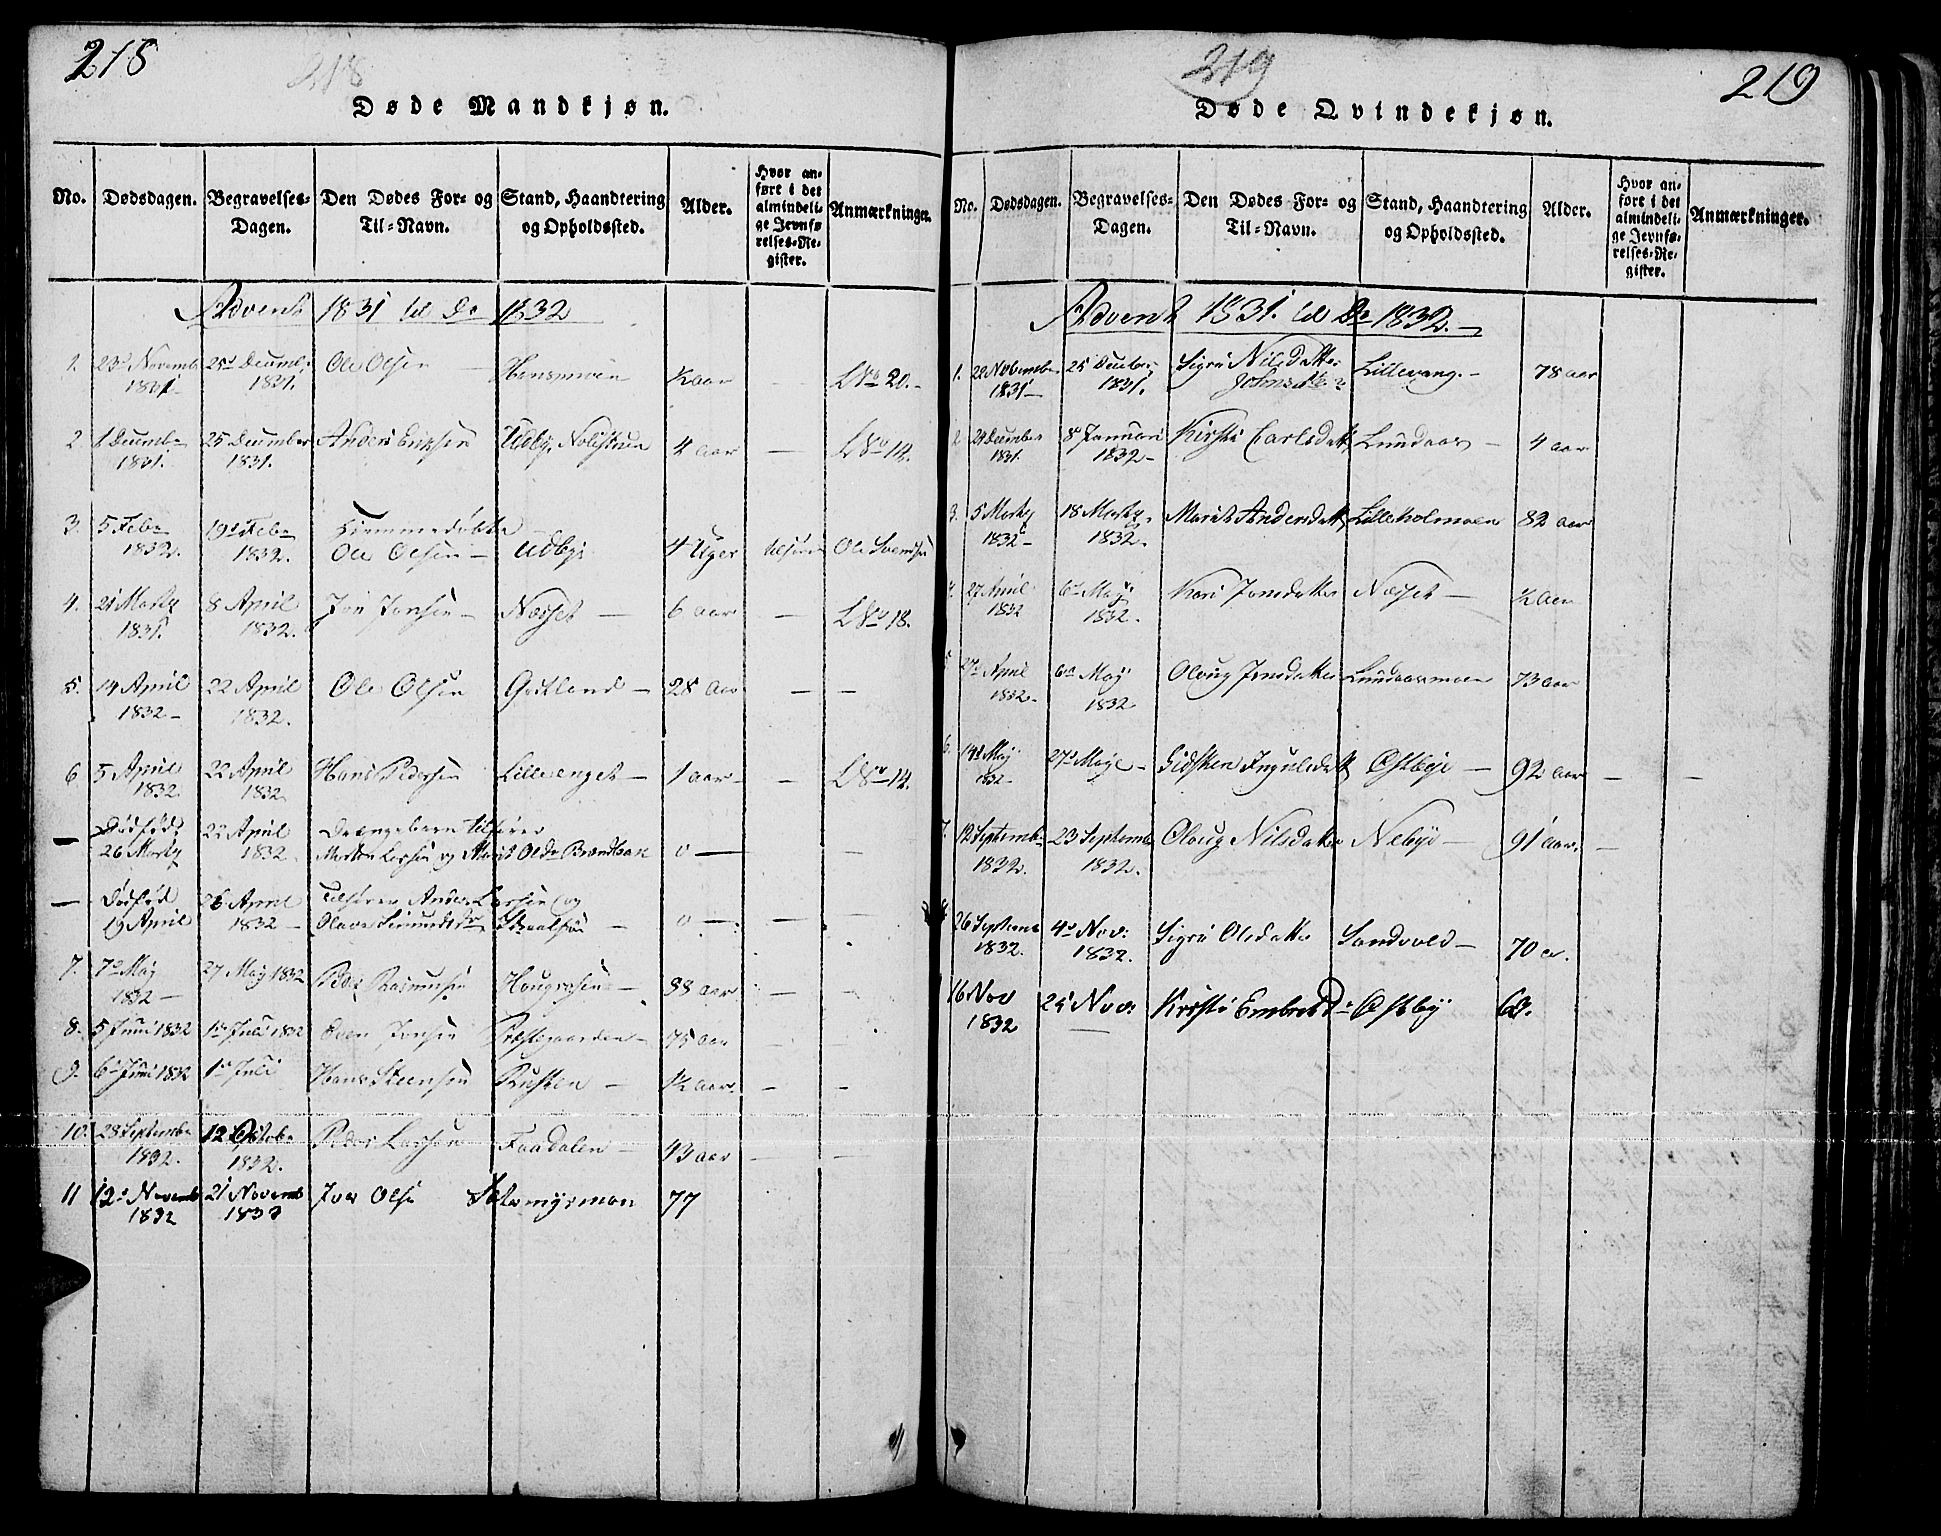 218
218
Døde Mandkjøn.
No. Dødsdagen. Begravelses-Dagen. Den Dødes For- og Til-Navn. Stand, Haandtering og Opholdssted. Alder. Hvor anført i det almindelige Jevnførelses-Register. Anmærkninger.
Advent 1831 til Do 1832
1. 23de Novemb 1831 25de Decemb: 1831. Ole Olsen Hansmoen ½ aar — LNo 20.
2. 1 Decembr 1831. 25 December 1831. Anders Eriksen Udby, 4 aar — LNo 14.
3. 5 Febr 1832. 19de Febr 1832. Hiemmedøbte
Ole Olsen — Udbye 4 Uger Ole Svendsen
4. 21 Marty 1831. 8 April 1832. Jon Jonsen — Næsset — 6 aar — LNo 18.
5. 14 April 1832 — 22 April 1832. Ole Olsen — 28 aar — —
6 5 April 1832. 22 April 1832. Hans Pedersen Lilleenget — 1 aar — — LNo 14.
— Dødfød 26 Marty 22 April 1832. Drengebarn
Morten Larsen og Marit Olsdr 0 — —
— Dødfød 19 April 26 April 1832 — Anders Larsen og
0 — — —
7. 7de May 1832 — 27 May 1832 Peder Rasmusen — 88 aar — —
8. 5 Juni 1832 1ste Juli 1832 Even Jonsen Præstegaarden — 75 aar — —
9. 6te Juni 1832 1ste Juli Hans Steensen Rusten — 1½ aar. — —
10. 28 Septembr 1832. 12 Octobr 1832. Peder Larsen Faadalen — 43 aar — —
11 12te Novemb 1832 21 Novemb 1832 Iver Olse 77
219
219
Døde Qvindekjøn.
No. Dødsdagen. Begravelses-Dagen. Den Dødes For- og Til-Navn. Stand, Haandtering og Opholdssted. Alder. Hvor anført i det almindelige Jevnførelses-Register. Anmærkninger.
Advent 1831. til Do 1832. —
1. 22 Novembr 1831 — 25 Decbr: 1831. Sigri Nilsdatter Lillevang. — 78 aar
2 21 December 1831. 8de Januari 1832 — Kirsti Carlsdatt Lundaas — 4 aar
3. 5 Marty 1832 — 18 Marty 1832. Marit Andersdatt Lilleholmoen 82 aar
4. 27 April 1832 6te May 1832. Kari Jonsdatter Næsset — ½ Aar
5. 27de April 1832. 6te May 1832 Oloug Jonsdatter Lundaasmoen 73 aar
6. 14de May 1832 — 27de Maye — Sidsken Ingulsdatt Østbye — 92 aar — —
7. 12 Septembr 1832. 23 Septembr 1832. Oloug Nilsdatter Nebye — 91 aar. —
26 Septemb 1832. 4de Nov: 1832. Sigri Olsdatter Sandvold — 70 a.
16 Nov 1832 25 Nov: Kirsti Embretsdr Østby 60.